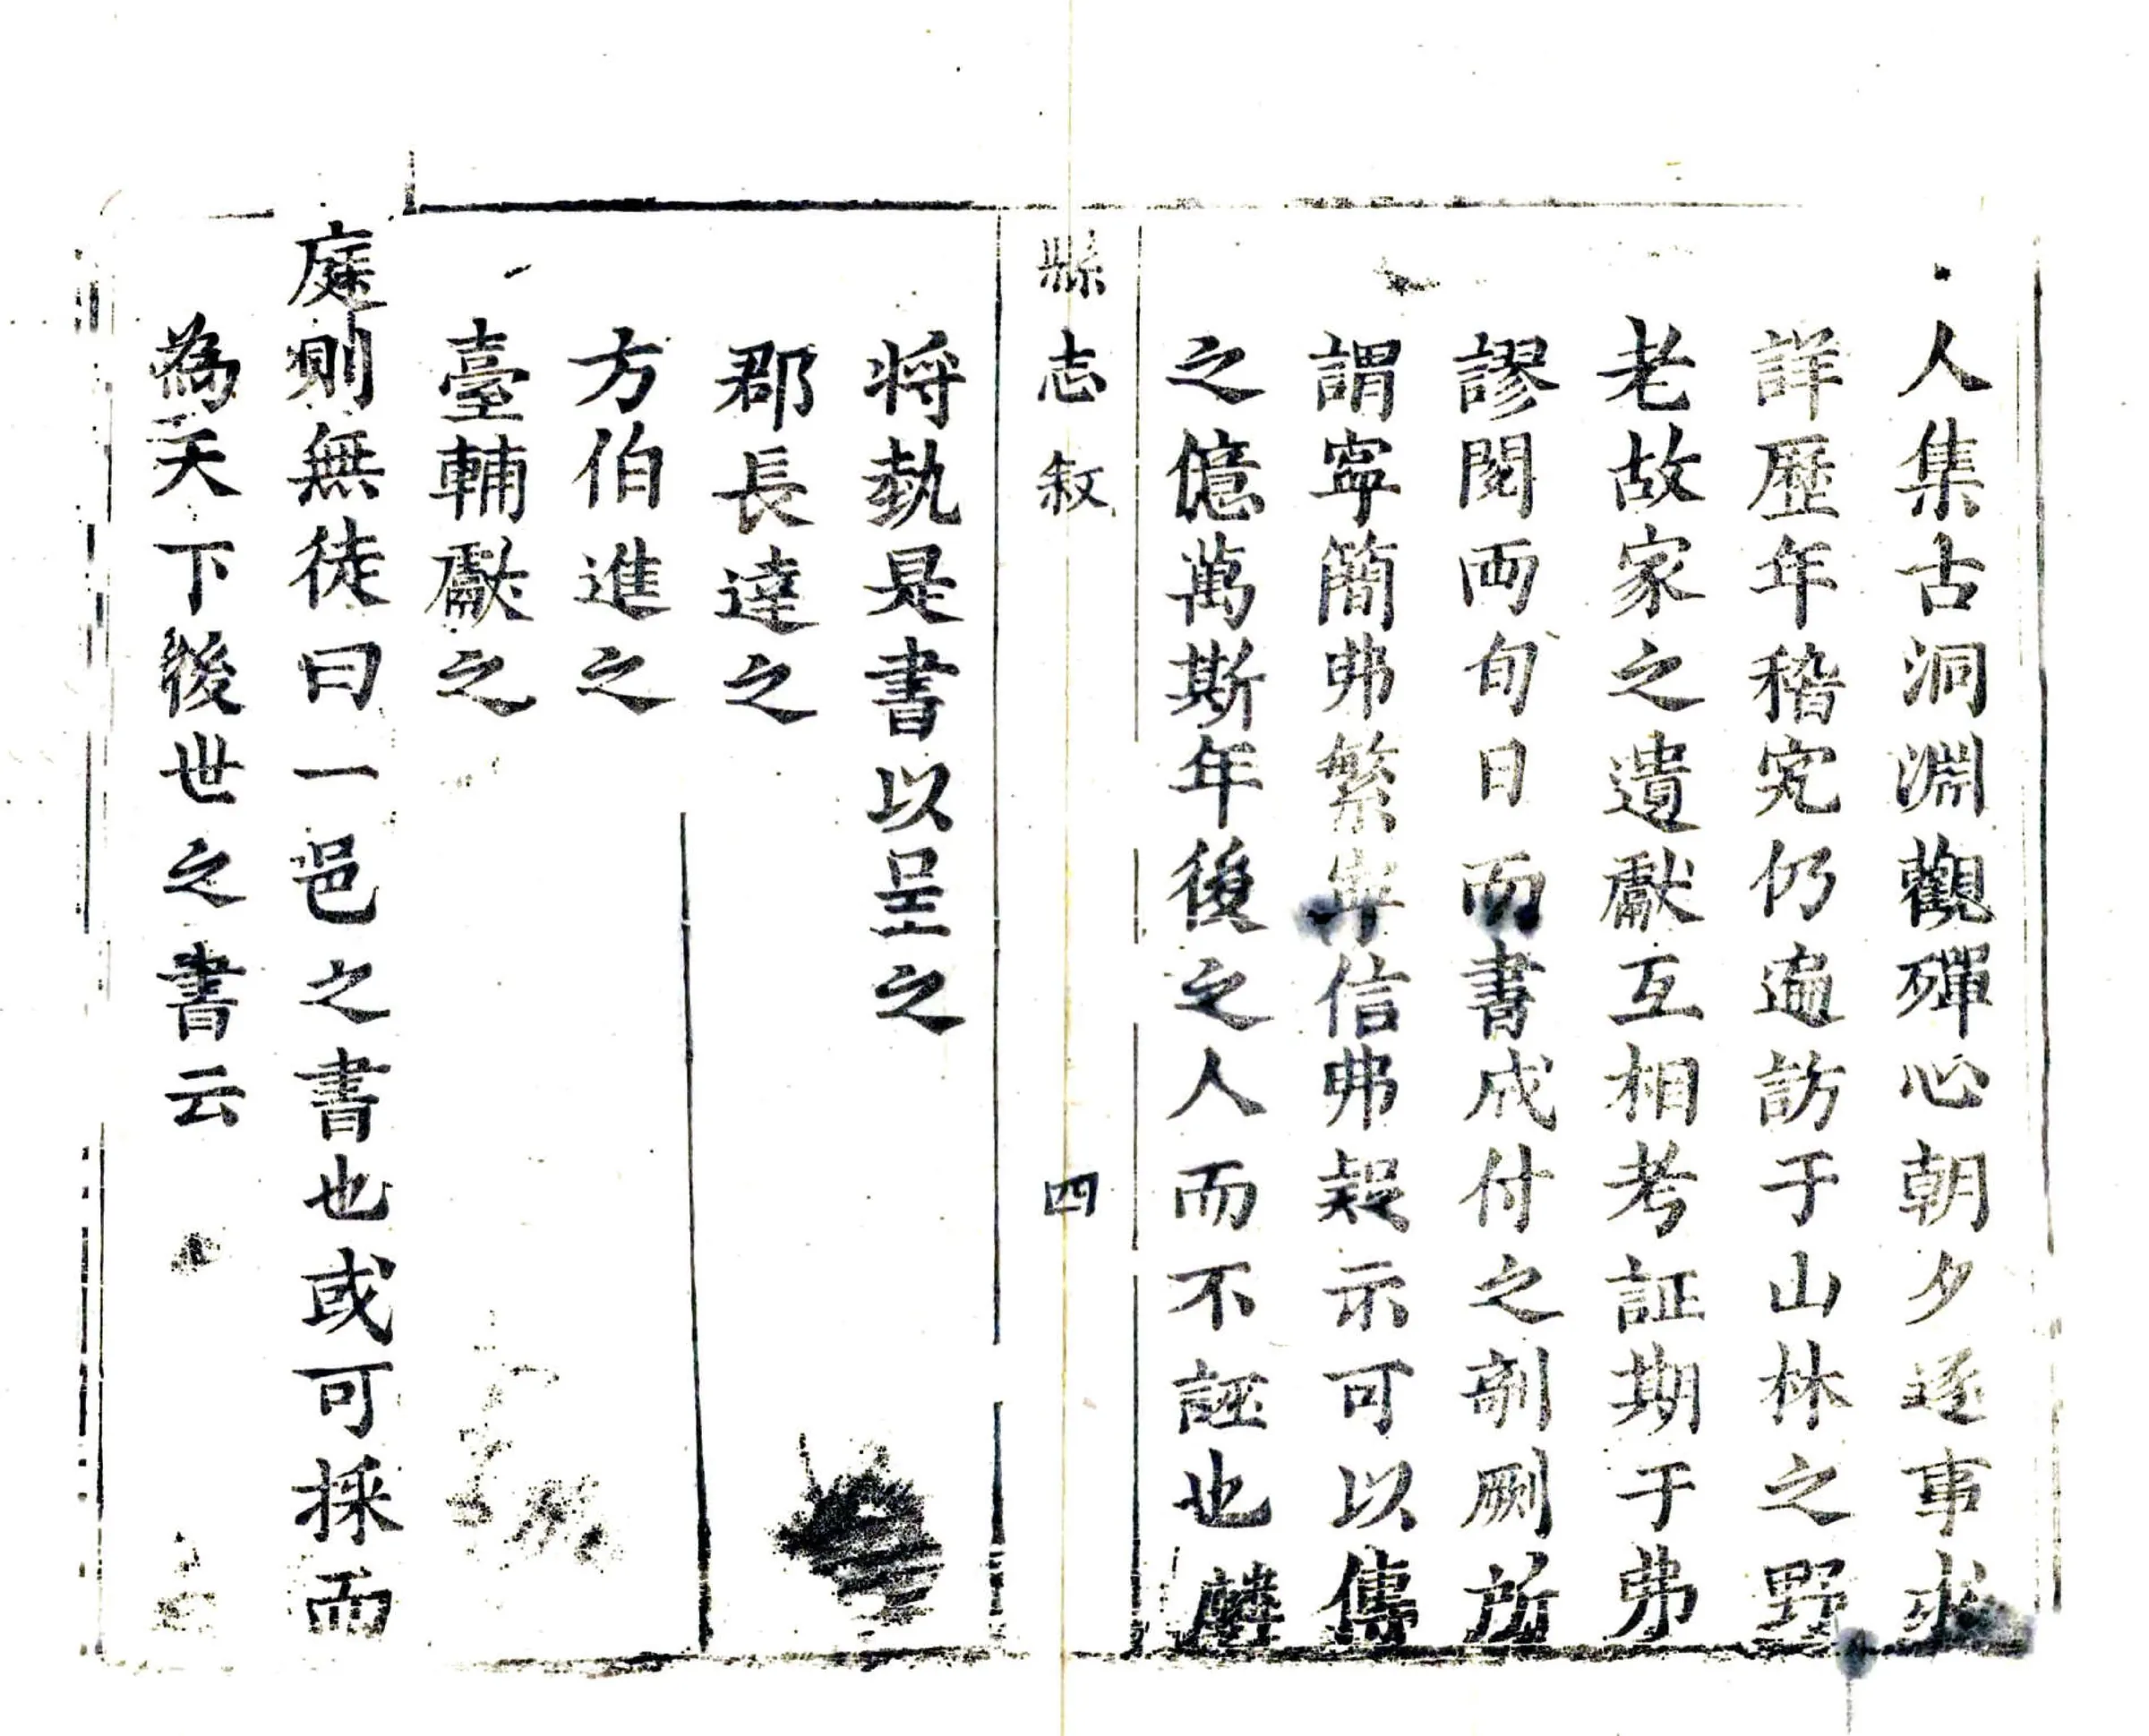 人集古洞淵觀殫心朝夕逐事求
詳歷年稽究仍遍訪于山林之野
老故家之遺獻互相考証期于弗
謬閱両旬日而書成付之剞劂所
謂寧簡弗繁寧信弗疑示可以傳
之億萬斯年後之人而不誣也麟
縣志敘 四
将執是書以呈之
郡長達之
方伯進之
臺輔獻之
庭則無徒曰一邑之書也或可採而
為天下後世之書云